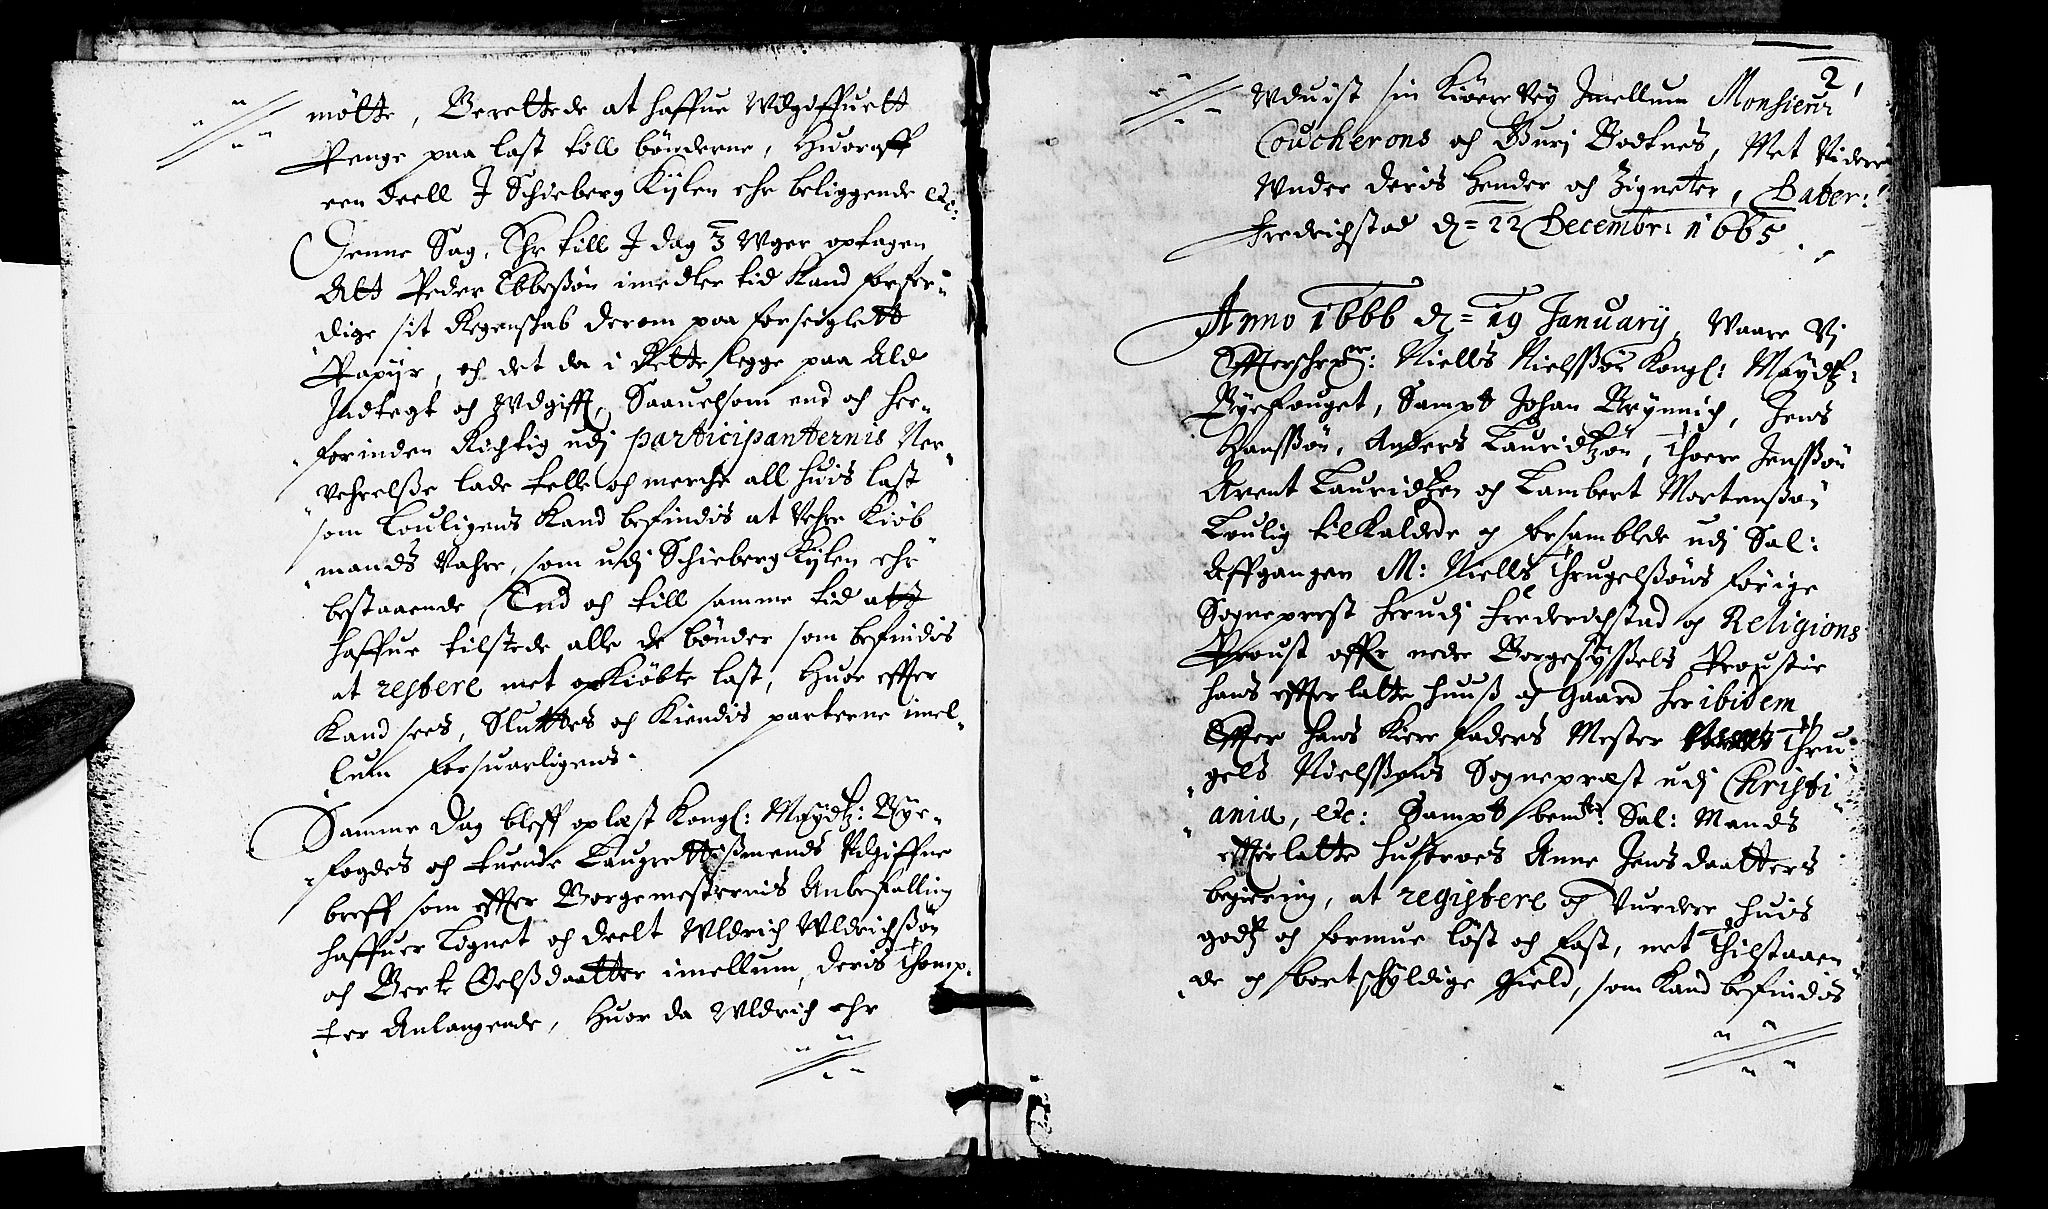 mötte, Berettede at haffue Udgiffuett
Penge paa last till bönderne, Huoraff
een deell J Schieberg Kijlen ehr beliggende etc:
Denne Sag, Ehr till J dag 3 Uger optagen
Att Peder Ebbesøn imidler tid kand forfer-
dige sit Regenskab derom paa forseiglett
Papijr, och det da i Rette legge paa Ald
Indtegt och Udgifft, Saauelsom end och her-
forinden Richtig udj participanternis Ner-
verelsse lade telle och merche all huis last
som Louligens kand befindis at vehre Kiöb-
mands Vahre, som udj Schieberg Kijlen ehr
bestaaende, End och till samme tid att
haffue tilstede alle de bönder som befindis
at restere met opkiöbte last, Huor effter
kand sees, Sluttes och kiendis parterne imel-
lum forsuarligens.
Samme dag bleff oplæst Kongl: Maydtz: Bye-
fogdes och tuende Laugrettismends Udgiffne
breff som effter Borgemesternis Anbefalling
haffuer Lignet och deelt Uldrich Uldrichsøn
och Berte Oelsdaatter imellum, deris Thomp-
ter Anlangende, Huor da Uldrich ehr
2
Uduist sin Kiöere Vey Jmellum Monsieur
Coucherons och Buri Bodtnes, Met Videre
Under deris Hender och Zigneter, Dater:
Fredrichstad d= 22 Decembr: 1665.
Anno 1666 d= 19 Januarij, Waare Vi
Effterschr: Niells Nielssøn Kongl: Maydtz:
Byefouget, Sampt Johan Brynnich, Jens
Hanssøn, Anders Lauridtzøn, Thore Jenssøn
Arent Lauridtzen och Lambert Mortensøn
Loulig tilkaldede og forsamblede udj Sal:
Affgangen M: Niells Thrugelsøns forige
Sogneprest herudj Frederichstad og Religions
Proust offr nedre Borgesyssels Proustie
hans effterlatte huuss og Gaard her ibidem
Effter hans kiere faders Mester Thru-
gels Nielssøns Sogneprest udj Christi-
ania, etc: Sampt bemte: Sal: Mands
effterlatte hustroes Anne Jens daatters
begiering, at registere og Vurdere huis
godtz och formue löst och fast, met Thilstaaen-
de og bortschyldige Gield, som kand befindis